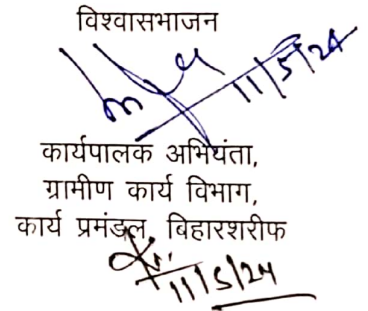 विश्वासभाजन
11/5/24
कार्यपालक अभियंता,
ग्रामीण कार्य विभाग,
कार्य प्रमंडल, बिहारशरीफ
11/5/24